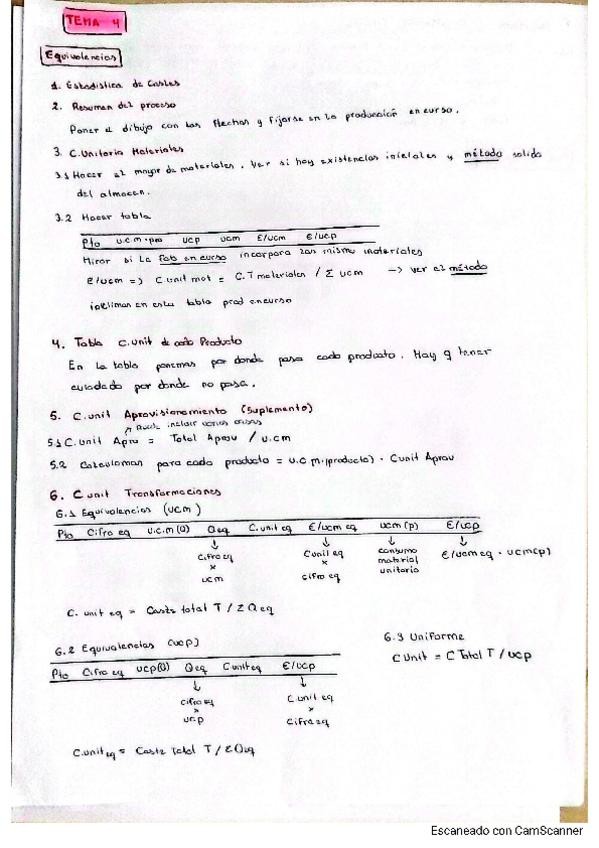 TEMA 4
Equivalencias
1. Estadistica de Costes
2. Resumen del proceso
Poner el dibujo con las flechas y fijarse en la producción en curso.
3. C.Unitario Materiales
3.1 Hacer el mayor de materiales. Ver si hay existencias iniciales y método salida
del almacen.
3.2 Hacer tabla
Pto u.c.m.pro ucp ucm €/ucm €/ucp
Mirar si la fab en curso incorpora los mismo materiales
€/ucm => C unit mat = C.T materiales / Σ ucm → ver el método
en esta tabla prod encurso
4. Tabla C.unit de cada Producto
En la tabla ponemos por donde pasa cada producto. Hay q tener
cuidado por donde no pasa.
5. C.unit Aprovisionamiento (Suplemento)
↗ Puede incluir varias cosas
5.1 C.unit Aprov = Total Aprov / u.cm
5.2 Calculamos para cada producto = u.c.m.(producto) · Cunit Aprov
6. C unit Transformaciones
6.1 Equivalencias (ucm)
Pto Cifra eq u.c.m(Q) Qeq C.unit eq €/ucm eq ucm(p) €/ucp
↓ ↓ ↓ ↓
cifra eq x ucm
Cunit eq x cifra eq
consumo material unitario
€/ucmeq · ucm(p)
C. unit eq = Coste total T / Σ Q eq
6.2 Equivalencias (ucp)
Pto Cifra eq ucp(Q) Qeq Cunit eq €/ucp
↓ ↓
cifra eq x ucp
C unit eq x Cifra eq
C.unit eq = Coste Total T / ΣQeq
6.3 Uniforme
C Unit = C Total T / ucp
Escaneado con CamScanner